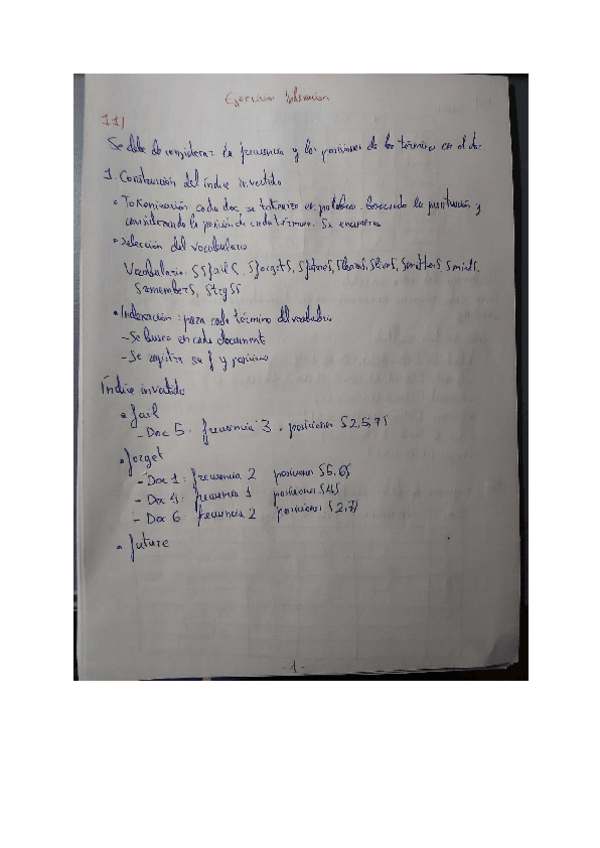 Ejercicios Indexacion
11/
Se debe de considerar la frecuencia y las posiciones de los términos en el doc
1. Construcción del índice invertido
• Tokenización cada doc se tokeniza en palabras. la puntuación y
considerando la posición de cada término. Se enumeran
• selección del vocabulario
Vocabulario. fail forget future, learn, live,
remember,
• Indexación: para cada término del vocabulario
- Se busca en cada documento
- Se registra su f y posicion
Índice invertido
• fail
- Doc 5. frecuencia 3, posiciones {2,5,7}
• forget
- Doc 1: frecuencia 2 posiciones {5,6}
- Doc 4: frecuencia 1 posiciones
- Doc 6 frecuencia 2 posiciones {2,7}
• future
- 1 -